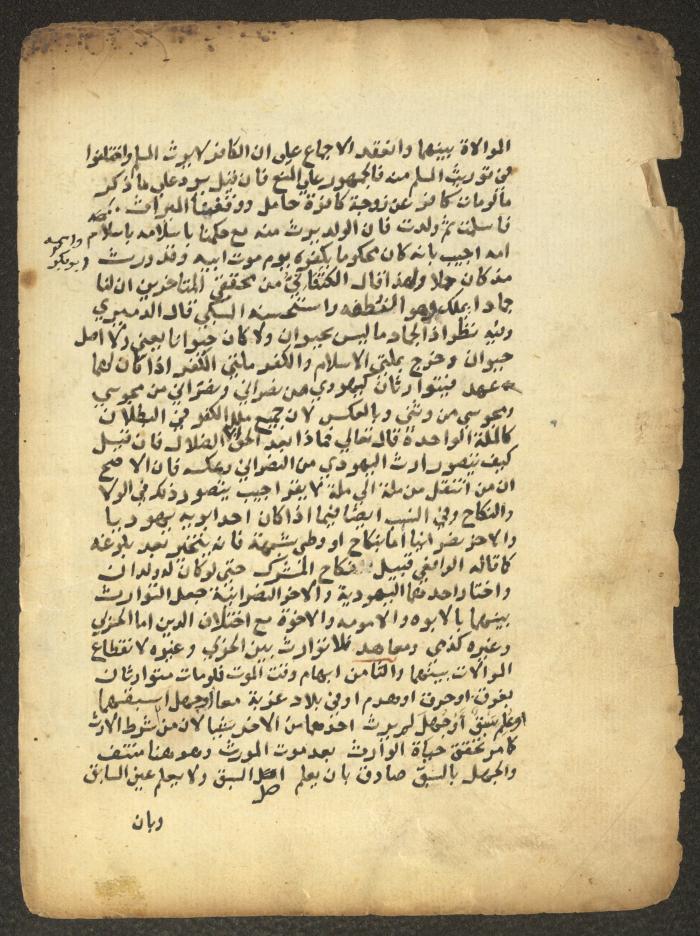 الموالاة بينهما وانعقد الاجماع على ان الكافر لا يرث المسلم واختلفوا
في توريث المسلم منه فالجمهور على المنع فان قيل يرد على ما ذكر
ما لو مات كافر عن زوجة كافرة حامل ووقفنا الميراث
فاسلمت ثم ولدت فان الولد يرث منه مع حكمنا باسلامه باسلام
امه اجيب بانه كان محكوما بكفره يوم موت ابيه وقد ورث
مذ كان حملا ولهذا قال الكتناني من محققي المتاخرين ان لنا
جمادا يملك وهو النطفة واستحسنه السبكي قال الدميري
وفيه نظر اذ الجماد ما ليس بحيوان ولا كان حيوانا يعني ولا اصل
حيوان وخرج بملتي الاسلام والكفر ملتي الكفر اذا كان لهما
عهد فيتوارثان كيهودي من نصراني ونصراني من مجوسي
ومجوسي من وثني وبالعكس لان جميع ملل الكفر في البطلان
كالملة الواحدة قال تعالى فماذا بعد الحق الا الضلال فان قيل
كيف يتصور ارث اليهودي من النصراني وعكسه فان الاصح
ان من انتقل من ملة الى ملة لا يقر اجيب يتصور ذلك في الولا
والنكاح وفي النسب ايضا فيما اذا كان احد ابويه يهوديا
والاخر نصرانيا اما بنكاح او وطي شبهة فانه يتخير بعد بلوغه
كما قاله الرافعي قبيل نكاح المشرك حتى لو كان له ولدان
واختار احدهما اليهودية والاخر النصرانية جعل التوارث
بينهما بالابوه والامومه والاخوة مع اختلاف الدين اما الحربي
وغيره كذمي ومعاهد فلا توارث بين الحربي وغيره لانقطاع
الموالات بينهما والثامن ابهام وقت الموت فلو مات متوارثان
بغرق او حرق او هدم او في بلاد غربة معا او جهل اسبقهما
او علم سبق او جهل لم يرث احدهما من الاخر شيئا لان من شرط الارث
كما مر تحقق حياة الوارث بعد موت المورث وهو هنا منتف
والجهل بالسبق صادق بان يعلم اصل السبق ولا يعلم عين السابق
وبان